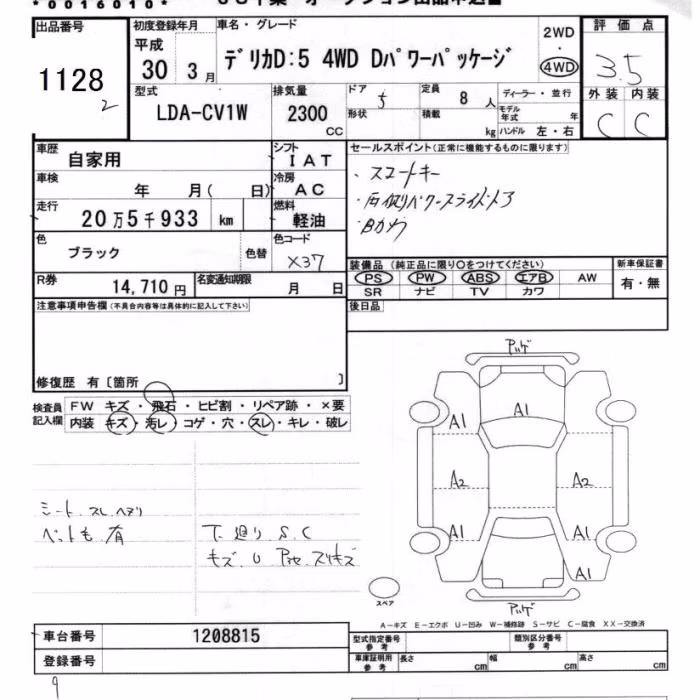 *0016010*
出品番号
1128
2
初度登録年月
平成
30 3月
車名・グレード
デリカD:5 4WD Dパワーパッケージ
2WD
・
4WD
評価点
3.5
外装 内装
C C
型式
LDA-CV1W
排気量
2300
cc
ドア
5
形状
定員
8 人
積載
kg
ディーラー・並行
モデル年式 年
ハンドル 左・右
車歴
自家用
シフト
IAT
車検
年 月( 日)
冷房
AC
走行
20万5千933 km
燃料
軽油
色
ブラック
色替
色コード
X37
R券
14,710円
名変通知期限
月 日
セールスポイント(正常に機能するものに限ります)
・スマートキー
・両側パワースライドドア
・Bカメラ
装備品(純正品に限り○をつけてください)
PS PW ABS エアB AW
SR ナビ TV カワ
新車保証書
有・無
後日品
注意事項申告欄(不具合内容等は具体的に記入して下さい)
修復歴 有〔箇所 〕
検査員
記入欄
FW キズ・飛石・ヒビ割・リペア跡・×要
内装 キズ・汚レ・コゲ・穴・スレ・キレ・破レ
シート スレ ヘタリ
ペット毛 有
下廻り S.C
キズ.U
スリキズ
A1
A1
A1
A2
A2
A1
A1
A1
スペア
A-キズ E-エクボ U-凹み W-補修跡 S-サビ C-腐食 XX-交換済
車台番号
1208815
登録番号
型式指定番号
参考
類別区分番号
参考
車庫証明用
参考
長さ cm
幅 cm
高さ cm
9